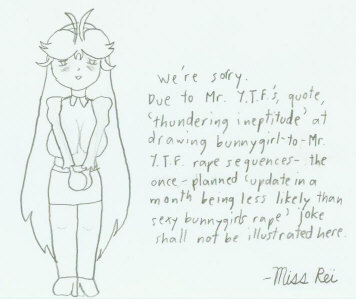 We're sorry.
Due to Mr. Y.T.F.'s, quote,
'thundering ineptitude' at
drawing bunnygirl-to-Mr.
Y.T.F. rape sequences- the
once-planned 'update in a
month being less likely than
sexy bunnygirls rape' joke
shall not be illustrated here.
-Miss Rei